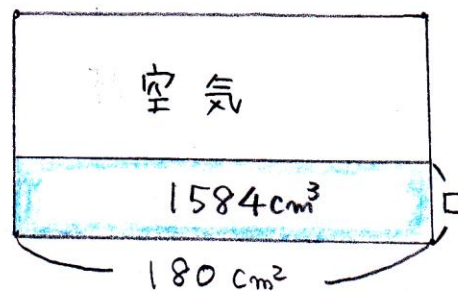 空気
1584cm³
□
180cm²